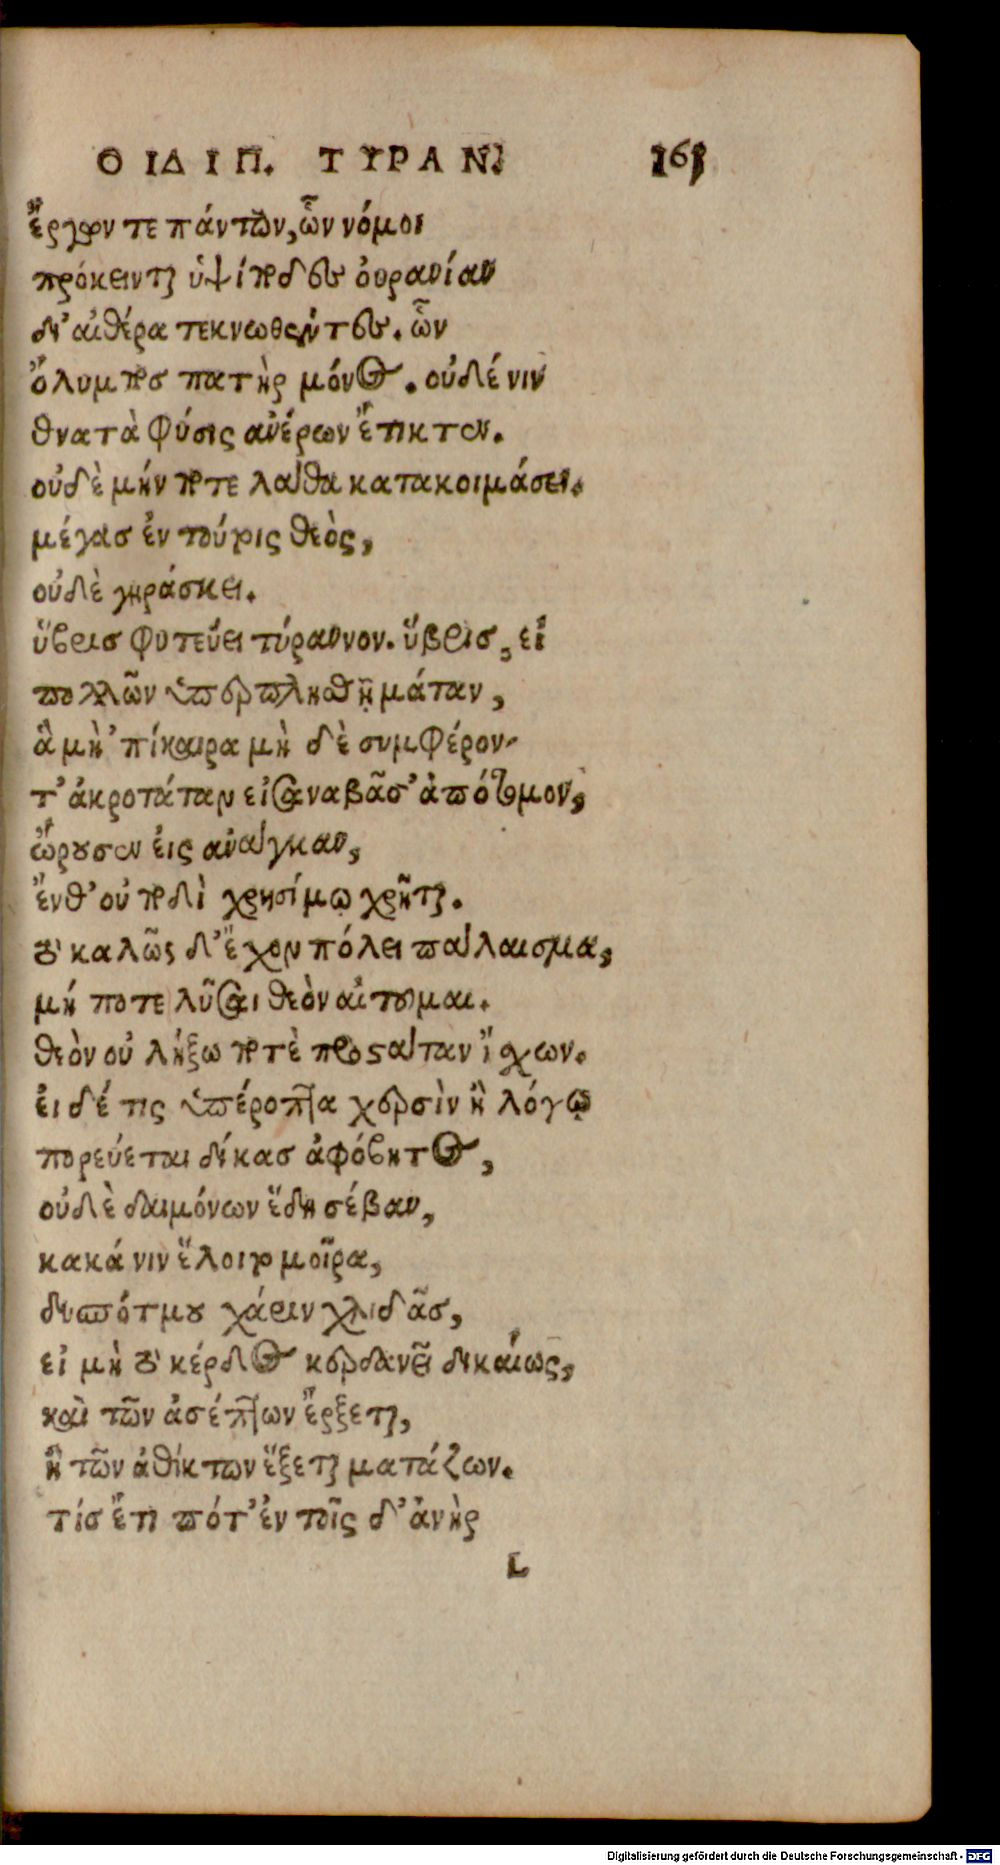 ΟΙΔΙΠ. ΤΥΡΑΝ. 161
ἔργων τε πάντων, ὧν νόμοι
πρόκεινται ὑψίποδες οὐρανίαν
δι' αἰθέρα τεκνωθέντες. ὧν
ὄλυμπος πατὴρ μόνος. οὐδέ νιν
θνατὰ φύσις ἀνέρων ἔτικτεν.
οὐδὲ μήν ποτε λάθα κατακοιμάσει.
μέγας ἐν τούτοις θεὸς,
οὐδὲ γηράσκει.
ὕβρις φυτεύει τύραννον. ὕβρις, εἰ
πολλῶν ὑπερπληθῇ μάταν,
ἃ μὴ 'πίκαιρα μὴ δὲ συμφέρον-
τ' ἀκροτάταν εἰσαναβᾶσ' ἀπότομον,
ὤρουσεν εἰς ἀνάγκαν,
ἔνθ' οὐ ποδὶ χρησίμῳ χρῆται.
τὸ καλῶς δ' ἔχον πόλει πάλαισμα,
μή ποτε λῦσαι θεὸν αἰτοῦμαι.
θεὸν οὐ λήξω ποτὲ προστάταν ἴσχων.
εἰ δέ τις ὑπέροπτα χερσὶν ἢ λόγῳ
πορεύεται δίκας ἀφόβητος,
οὐδὲ δαιμόνων ἕδη σέβων,
κακά νιν ἕλοιτο μοῖρα,
δυσπότμου χάριν χλιδᾶς,
εἰ μὴ τὸ κέρδος κερδανεῖ δικαίως,
καὶ τῶν ἀσέπτων ἔρξεται,
ἢ τῶν ἀθίκτων ἕξεται ματάζων.
τίς ἔτι πότ' ἐν τοῖς δ' ἀνὴρ
L
Digitalisierung gefördert durch die Deutsche Forschungsgemeinschaft - DFG